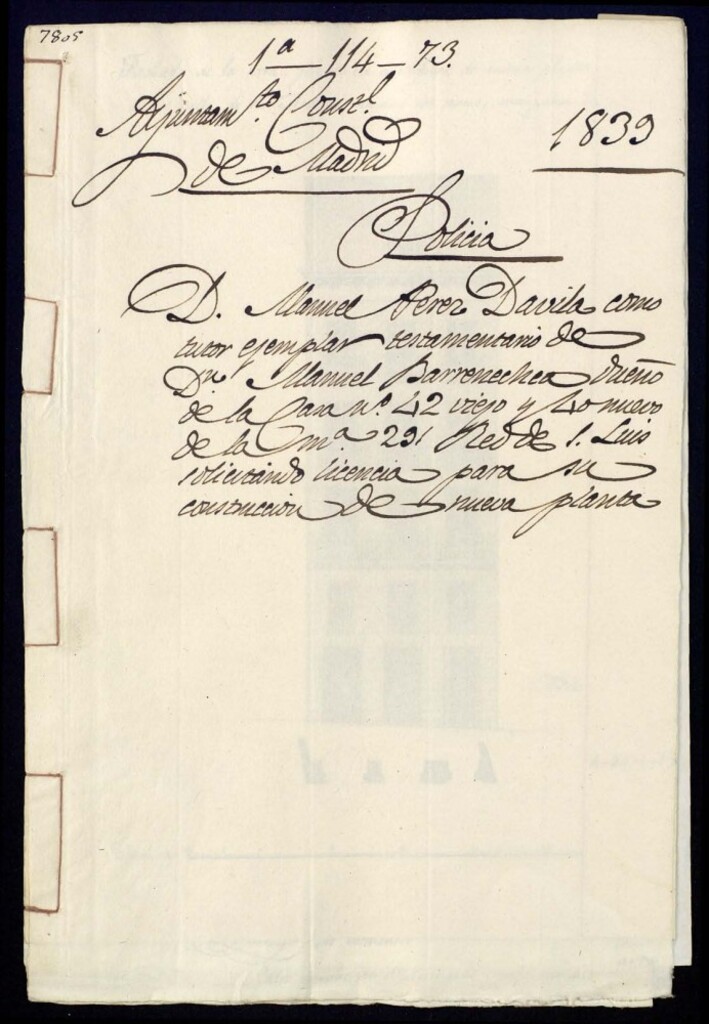 7805
1ª—114—73.
Ayuntam.to Const.l
de Madrid
1839
Policia
D. Manuel Perez Davila como
tutor ejemplar testamentario de
Dn. Manuel Barrenechea dueño
de la Casa nº 42 viejo y 40 nuevo
de la mª 291 Red de S. Luis
solicitando licencia para su
construccion de nueva planta